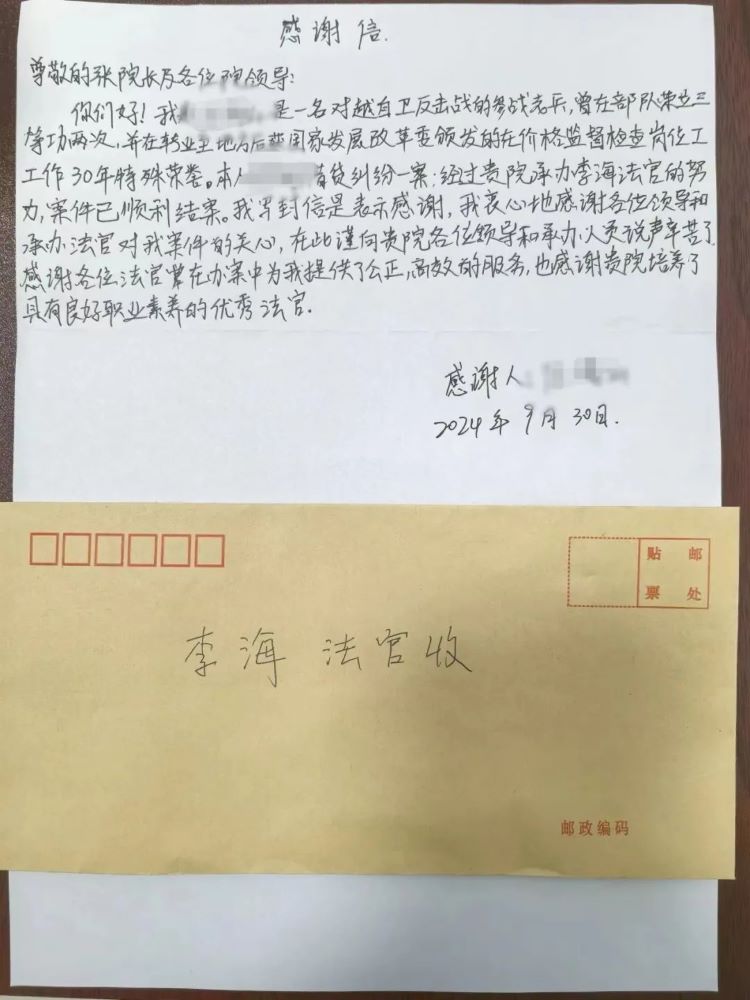 感谢信.
尊敬的张院长及各位院领导:
你们好!我是一名对越自卫反击战的参战老兵,曾在部队荣立三
等功两次,并在转业地方后获国家发展改革委颁发的在价格监督检查岗位工
工作30年特殊荣誉。本人借贷纠纷一案:经过贵院承办李海法官的努
力,案件已顺利结案。我写封信是表示感谢,我衷心地感谢各位领导和
承办法官对我案件的关心,在此谨向贵院各位领导和承办人员说声辛苦了
感谢各位法官常在办案中为我提供了公正,高效的服务,也感谢贵院培养了
具有良好职业素养的优秀法官.
感谢人
2024年9月30日.
贴 邮
票 处
李海 法官收
邮政编码